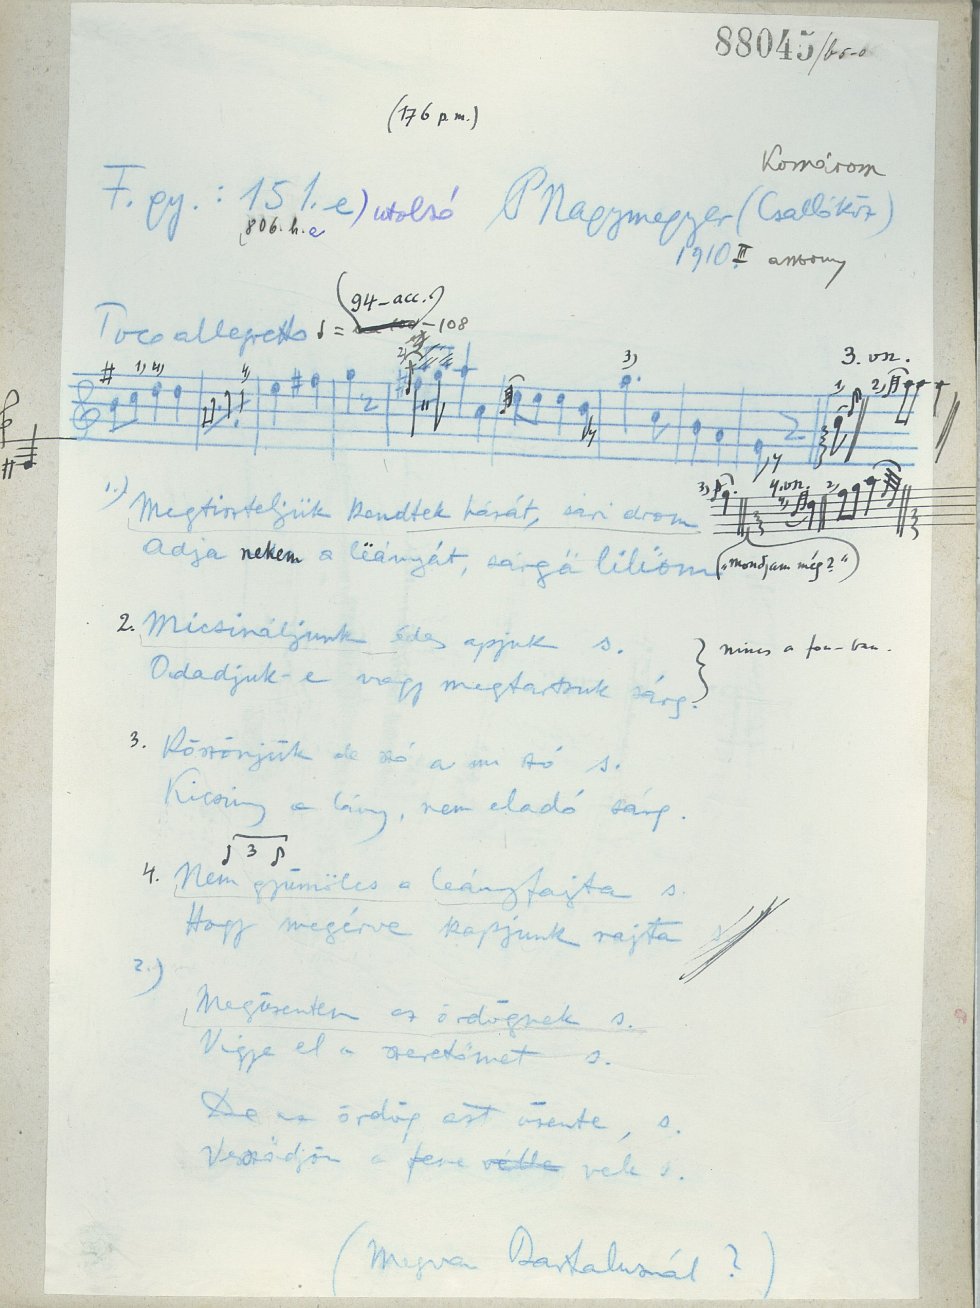 88045/
(176 p.m.)
Komárom
F. gy.: 151.e) utolsó P Nagymegyer (Csallóköz)
806. h. e
1910. III asszony
(94-acc.)
Poco allegretto = -108
2,
1, 4, 4, 3, 3. vsz.
1, 2,
3, 4. vsz.
4, 2,
1.) Megtiszteljük kendtek házát, sári drom
Adja nekem a lëányát, sárgä liliöm
("mondjam még?")
2. Micsináljunk édes apjuk s.
Odadjuk-e vagy megtartsuk sárg.
} nincs a fon-ban.
3. Köszönjük de szó a mi szó s.
Kicsiny a lány, nem eladó sárg.
3
4. Nem gyümölcs a leányfajta s.
Hogy megérve kapjunk rajta s
2.)
Megüzentem az ördögnek s.
Vigye el a szeretőmet s.
De az ördög azt üzente, s.
Vesződjön a fene vélle vele s.
(Megvan Bartalusnál?)